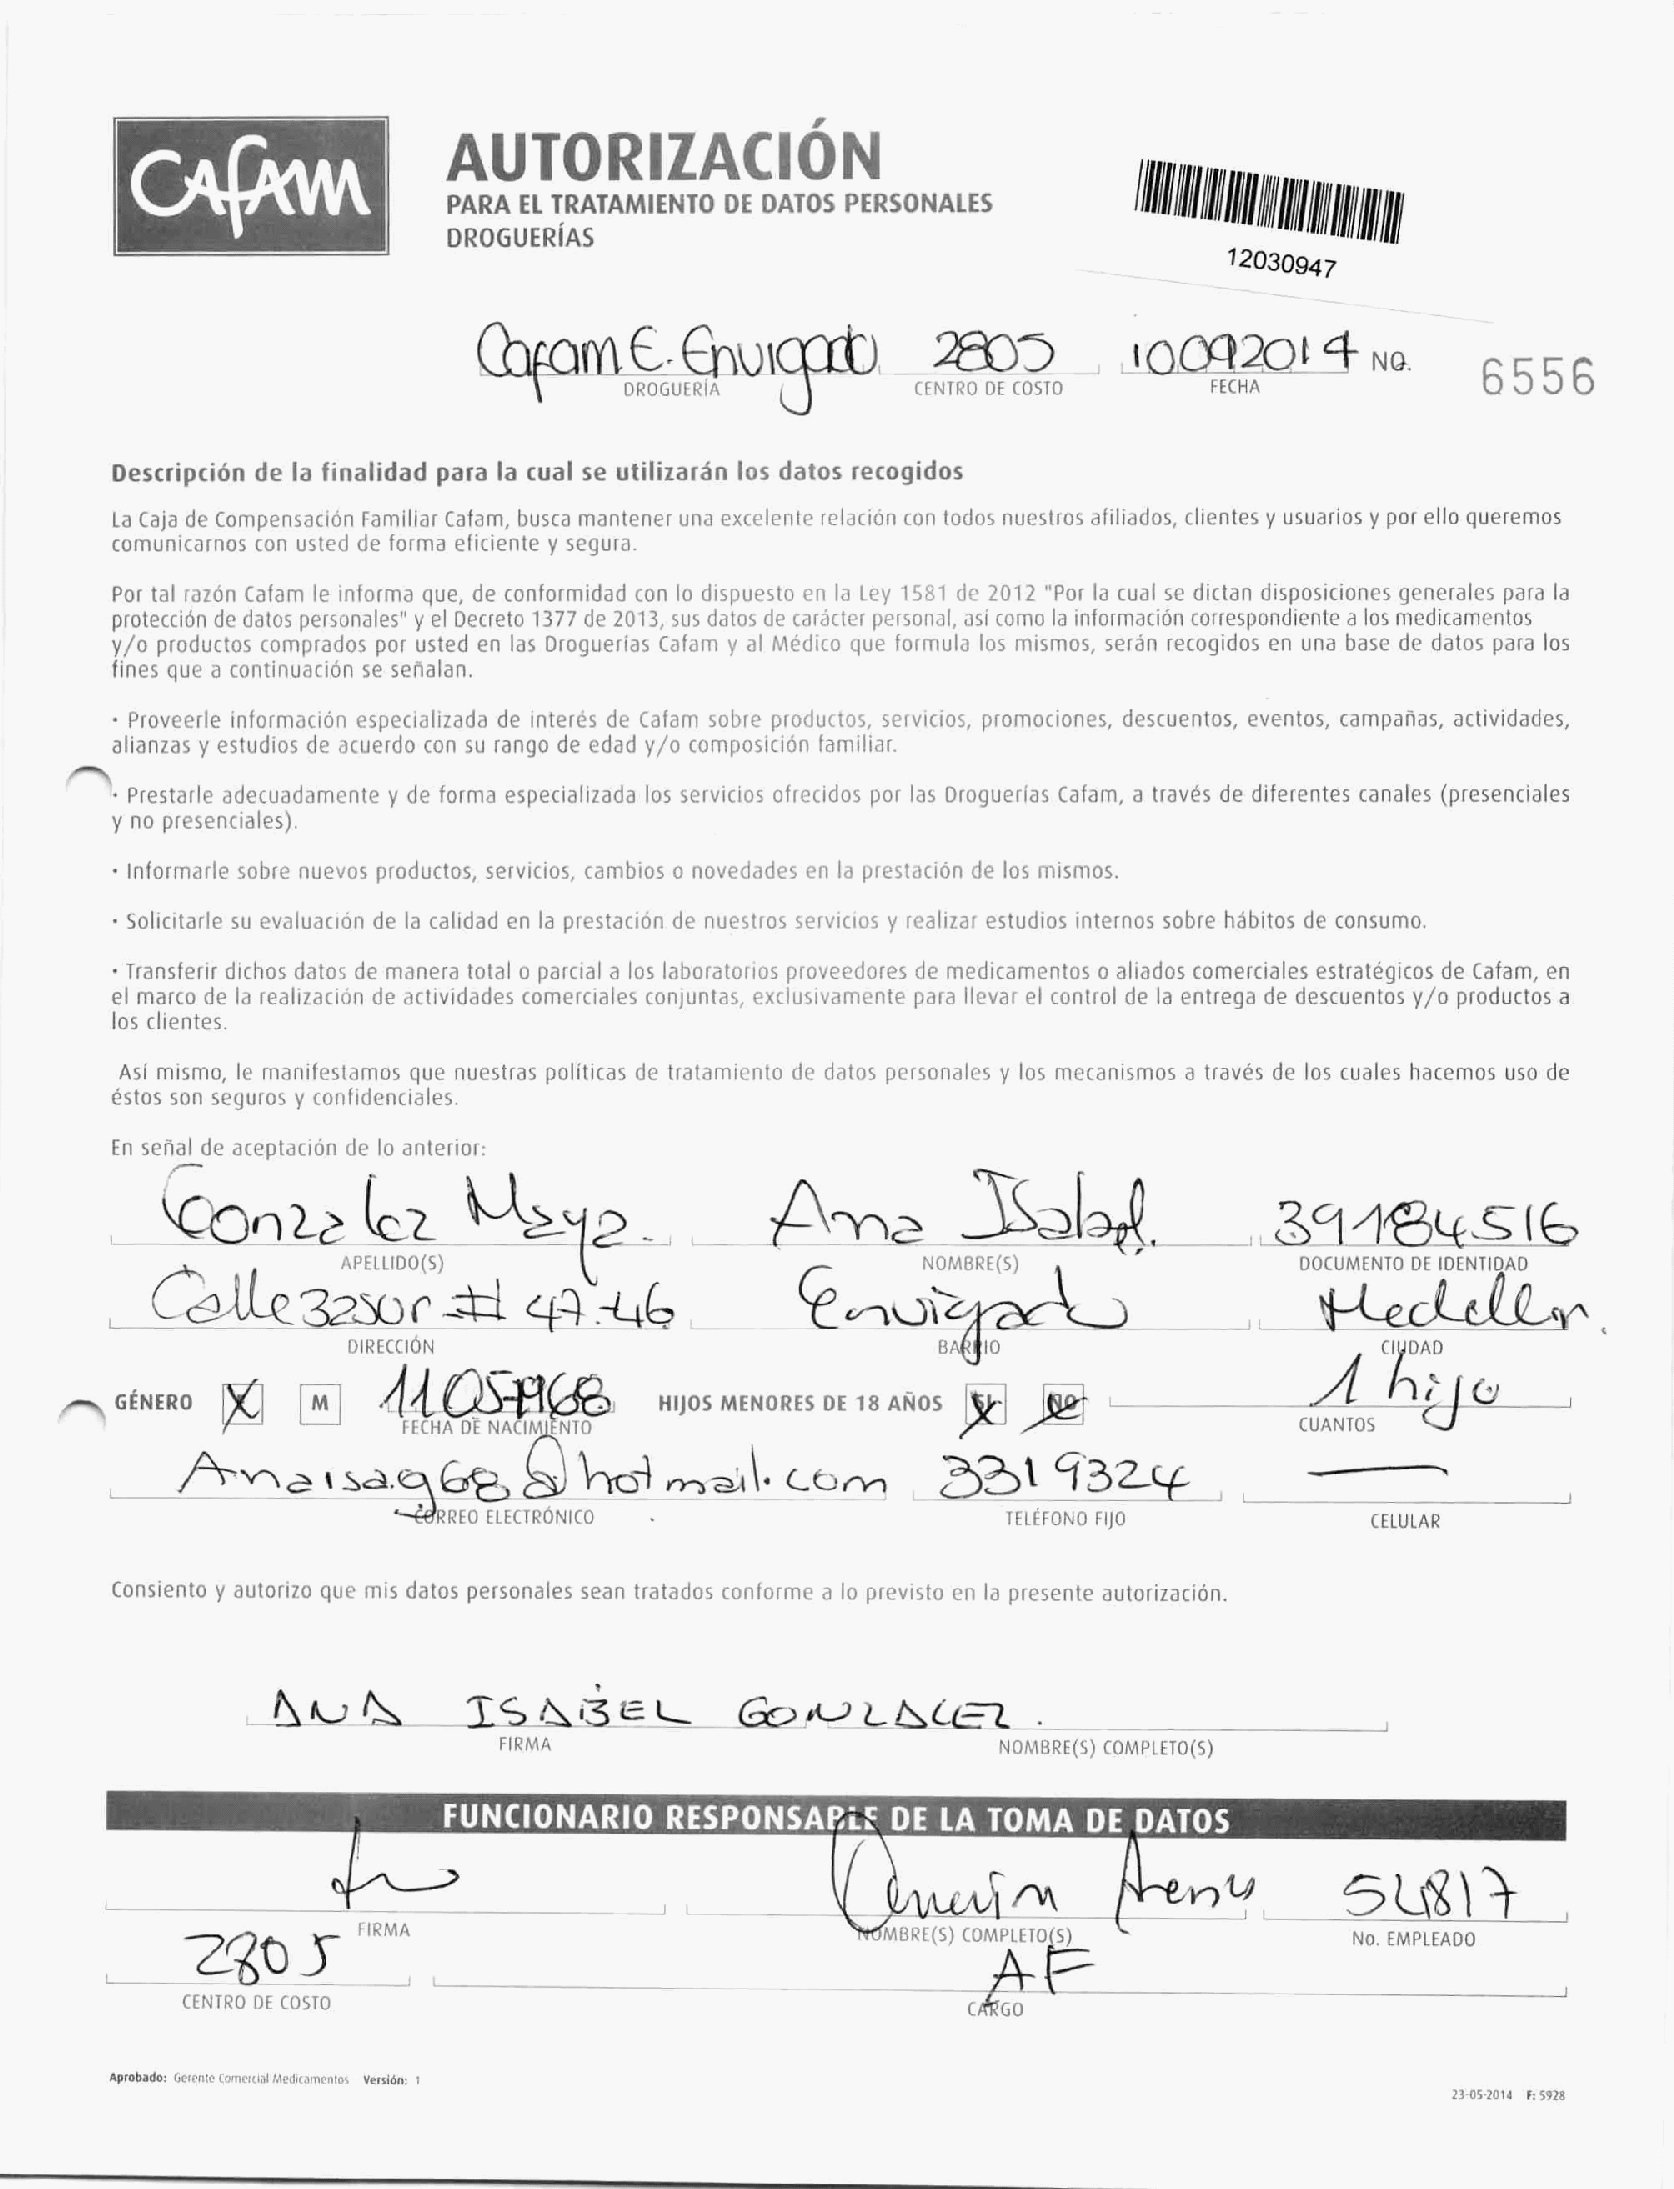 CAFAM
AUTORIZACIÓN
PARA EL TRATAMIENTO DE DATOS PERSONALES
DROGUERÍAS
12030947
Cafam E. Envigado 2805 10092014 NO. 6556
DROGUERÍA CENTRO DE COSTO FECHA
Descripción de la finalidad para la cual se utilizarán los datos recogidos
La Caja de Compensación Familiar Cafam, busca mantener una excelente relación con todos nuestros afiliados, clientes y usuarios y por ello queremos
comunicarnos con usted de forma eficiente y segura.
Por tal razón Cafam le informa que, de conformidad con lo dispuesto en la Ley 1581 de 2012 "Por la cual se dictan disposiciones generales para la
protección de datos personales" y el Decreto 1377 de 2013, sus datos de carácter personal, así como la información correspondiente a los medicamentos
y/o productos comprados por usted en las Droguerías Cafam y al Médico que formula los mismos, serán recogidos en una base de datos para los
fines que a continuación se señalan.
· Proveerle información especializada de interés de Cafam sobre productos, servicios, promociones, descuentos, eventos, campañas, actividades,
alianzas y estudios de acuerdo con su rango de edad y/o composición familiar.
· Prestarle adecuadamente y de forma especializada los servicios ofrecidos por las Droguerías Cafam, a través de diferentes canales (presenciales
y no presenciales).
· Informarle sobre nuevos productos, servicios, cambios o novedades en la prestación de los mismos.
· Solicitarle su evaluación de la calidad en la prestación de nuestros servicios y realizar estudios internos sobre hábitos de consumo.
· Transferir dichos datos de manera total o parcial a los laboratorios proveedores de medicamentos o aliados comerciales estratégicos de Cafam, en
el marco de la realización de actividades comerciales conjuntas, exclusivamente para llevar el control de la entrega de descuentos y/o productos a
los clientes.
Así mismo, le manifestamos que nuestras políticas de tratamiento de datos personales y los mecanismos a través de los cuales hacemos uso de
éstos son seguros y confidenciales.
En señal de aceptación de lo anterior:
Gonzalez Maya. Ana Isabel. 39184516
APELLIDO(S) NOMBRE(S) DOCUMENTO DE IDENTIDAD
Calle 32sur # 47-46 Envigado Medellin.
DIRECCIÓN BARRIO CIUDAD
GÉNERO X M 11051968 HIJOS MENORES DE 18 AÑOS SI NO 1 hijo
FECHA DE NACIMIENTO CUANTOS
Anaisag68@hotmail.com 3319324 —
CORREO ELECTRÓNICO TELÉFONO FIJO CELULAR
Consiento y autorizo que mis datos personales sean tratados conforme a lo previsto en la presente autorización.
ANA ISABEL GONZALEZ.
FIRMA NOMBRE(S) COMPLETO(S)
FUNCIONARIO RESPONSABLE DE LA TOMA DE DATOS
54817
FIRMA NOMBRE(S) COMPLETO(S) No. EMPLEADO
2805 AF
CENTRO DE COSTO CARGO
Aprobado: Gerente Comercial Medicamentos Versión: 1
23-05-2014 F: 5928